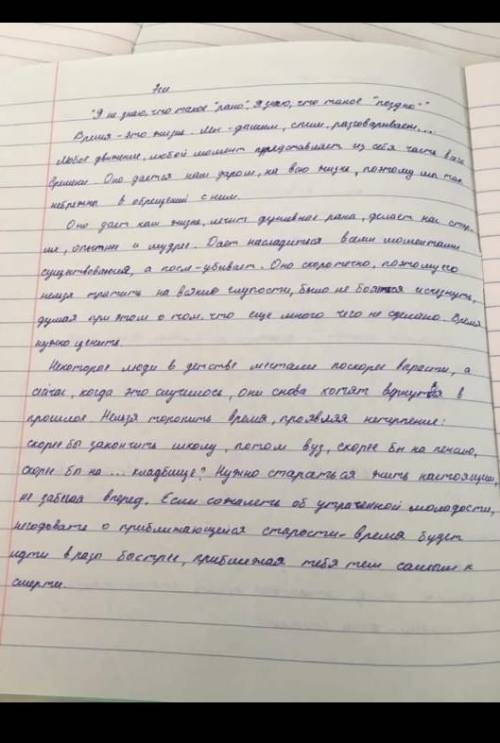 Эссе
"Я не знаю, что такое "рано". Я знаю, что такое "поздно""
Время - это жизнь. Мы - дышим, спим, разговариваем...
Любое движение, любой момент представляет из себя часть всего
времени. Оно дается нам даром, на всю жизнь, поэтому мы так
небрежны в обращении с ним.
Оно дает нам жизнь, лечит душевные раны, делает нас стар-
ше, опытнее и мудрее. Дает насладиться всеми моментами
существования, а после - убивает. Оно скоротечно, поэтому его
нельзя тратить на всякие глупости, было не бояться исчезнуть,
думая при этом о том, что еще много чего не сделано. Время
нужно ценить.
Некоторые люди в детстве мечтали поскорее вырасти, а
сейчас, когда это случилось, они снова хотят вернуться в
прошлое. Нельзя торопить время, проявляя нетерпение:
скорее бы закончить школу, потом вуз, скорее бы на пенсию,
скорее бы на ... кладбище? Нужно стараться жить настоящим,
не забегая вперед. Если сожалеть об утраченной молодости,
негодовать о приближающейся старости - время будет
идти в разы быстрее, приближая тебя тем самым к
смерти.